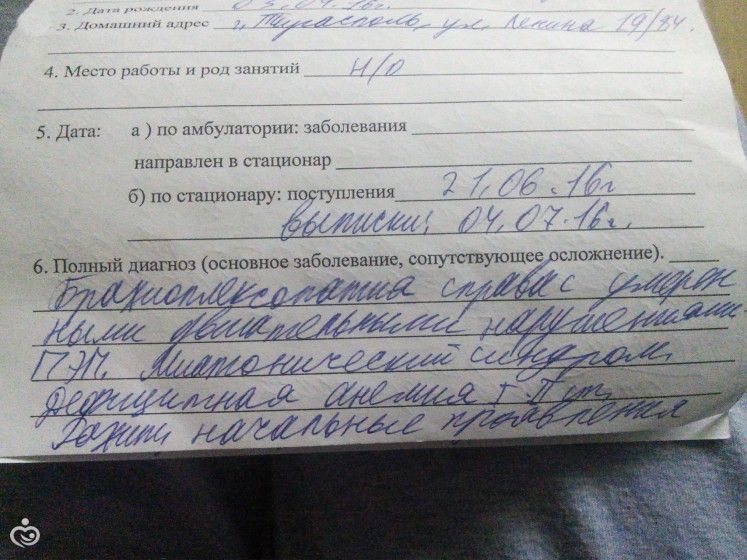 2. Дата рождения 03.04.16г.
3. Домашний адрес г. Тирасполь, ул. Ленина 19/84.
4. Место работы и род занятий Н/О
5. Дата: а ) по амбулатории: заболевания
направлен в стационар
б) по стационару: поступления 21.06.16г
выписки: 04.07.16г.
6. Полный диагноз (основное заболевание, сопутствующее осложнение).
Брахиоплексопатия справа с умерен
ными двигательными нарушениями.
ПЭП. Миатонический синдром.
Дефицитная анемия I-II ст.
Рахит, начальные проявления